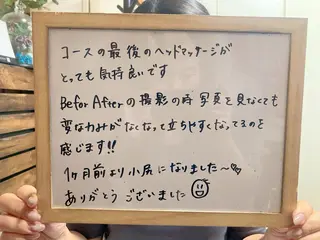 コースの最後のヘッドマッサージが
とっても気持良いです
Befor Afterの撮影の時 写真を見なくても
変な力みがなくなって立ちやすくなってるのを
感じます!!
1ヶ月前より小尻になりました〜
ありがとうございました